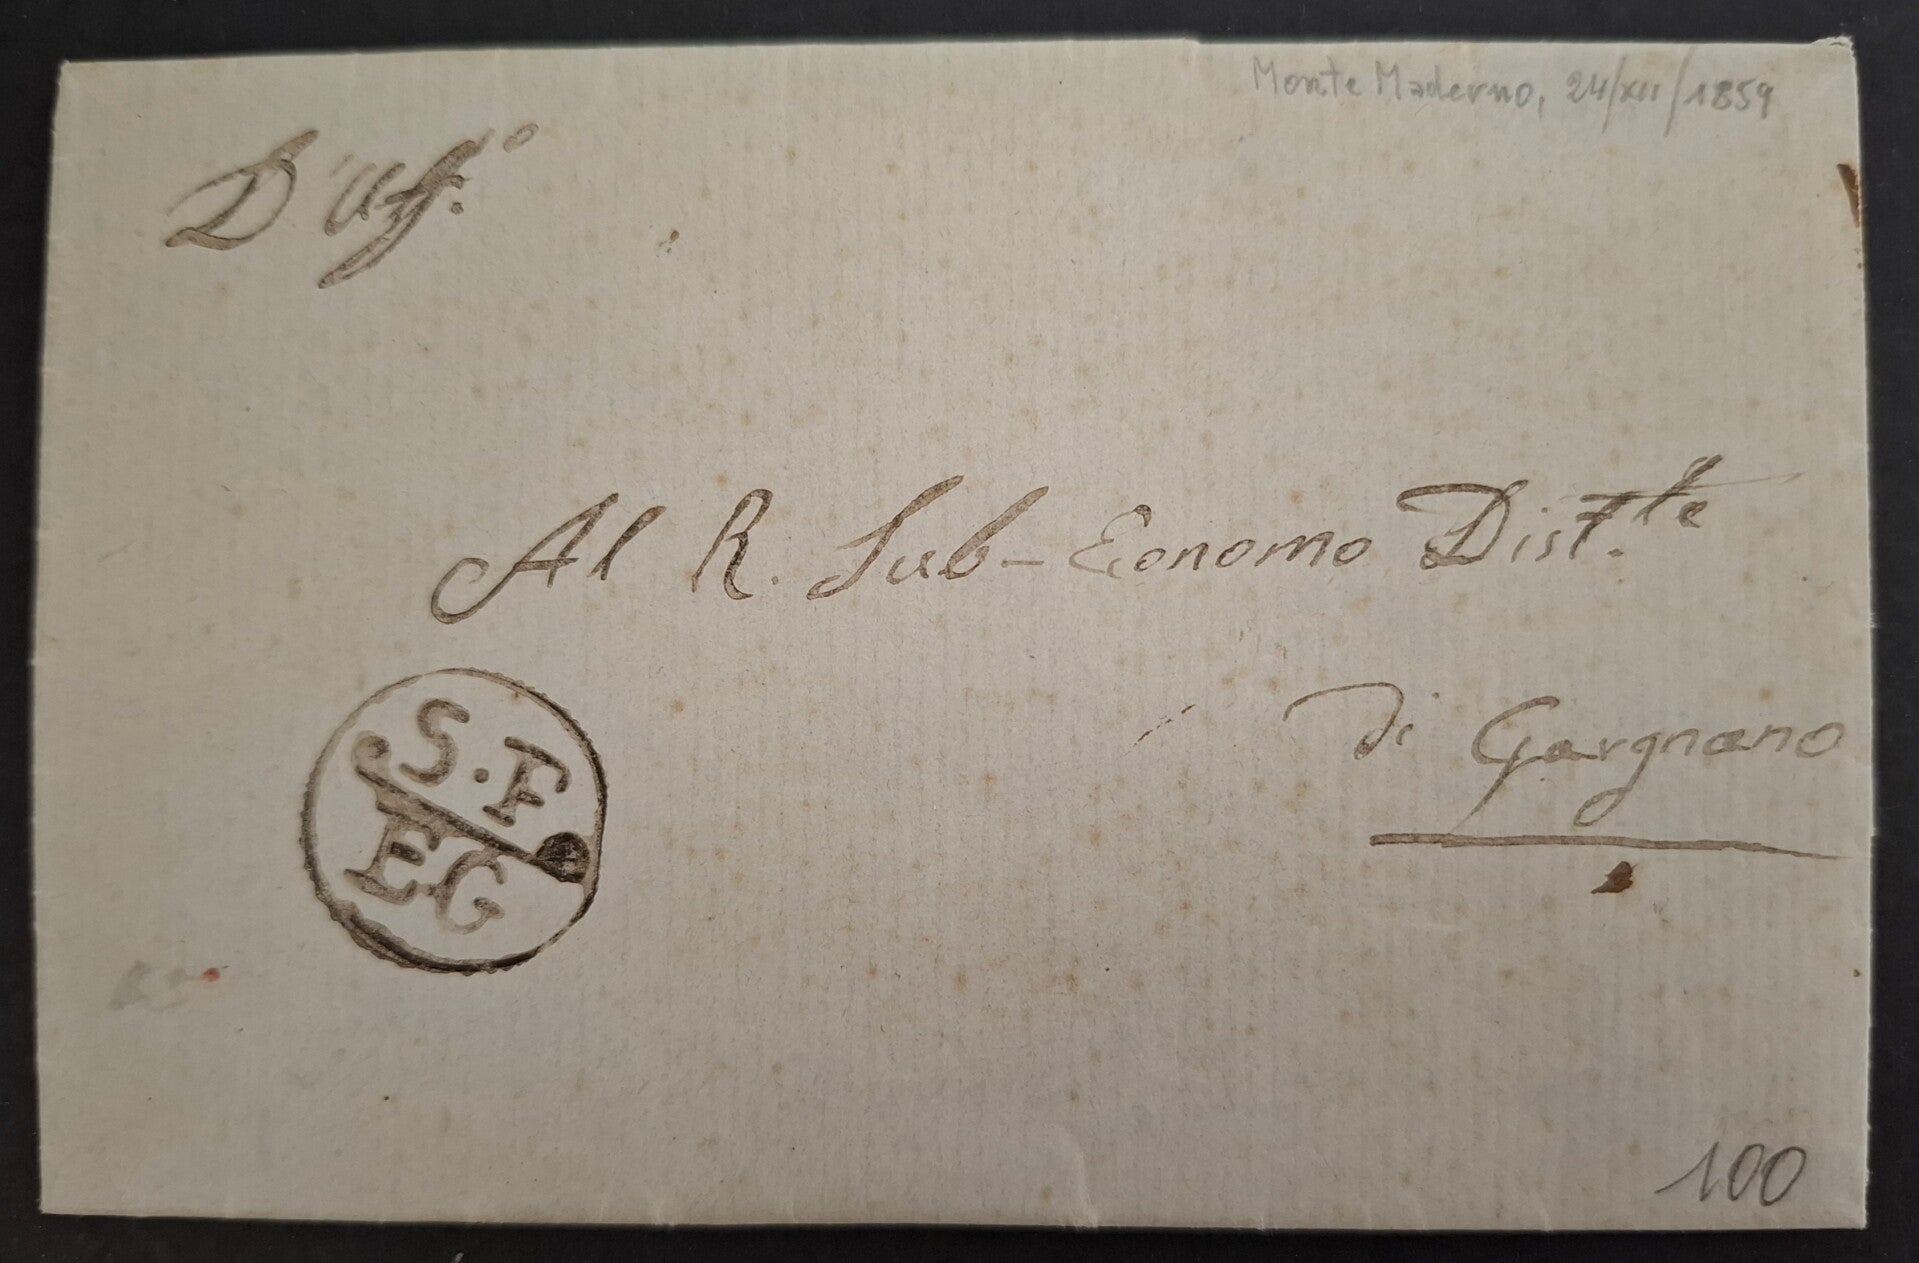 Monte Maderno, 24/XII/1859
D'Uff.o
Al R. Sub-Economo Dist.le
di Gargnano
S.F
E.G
100